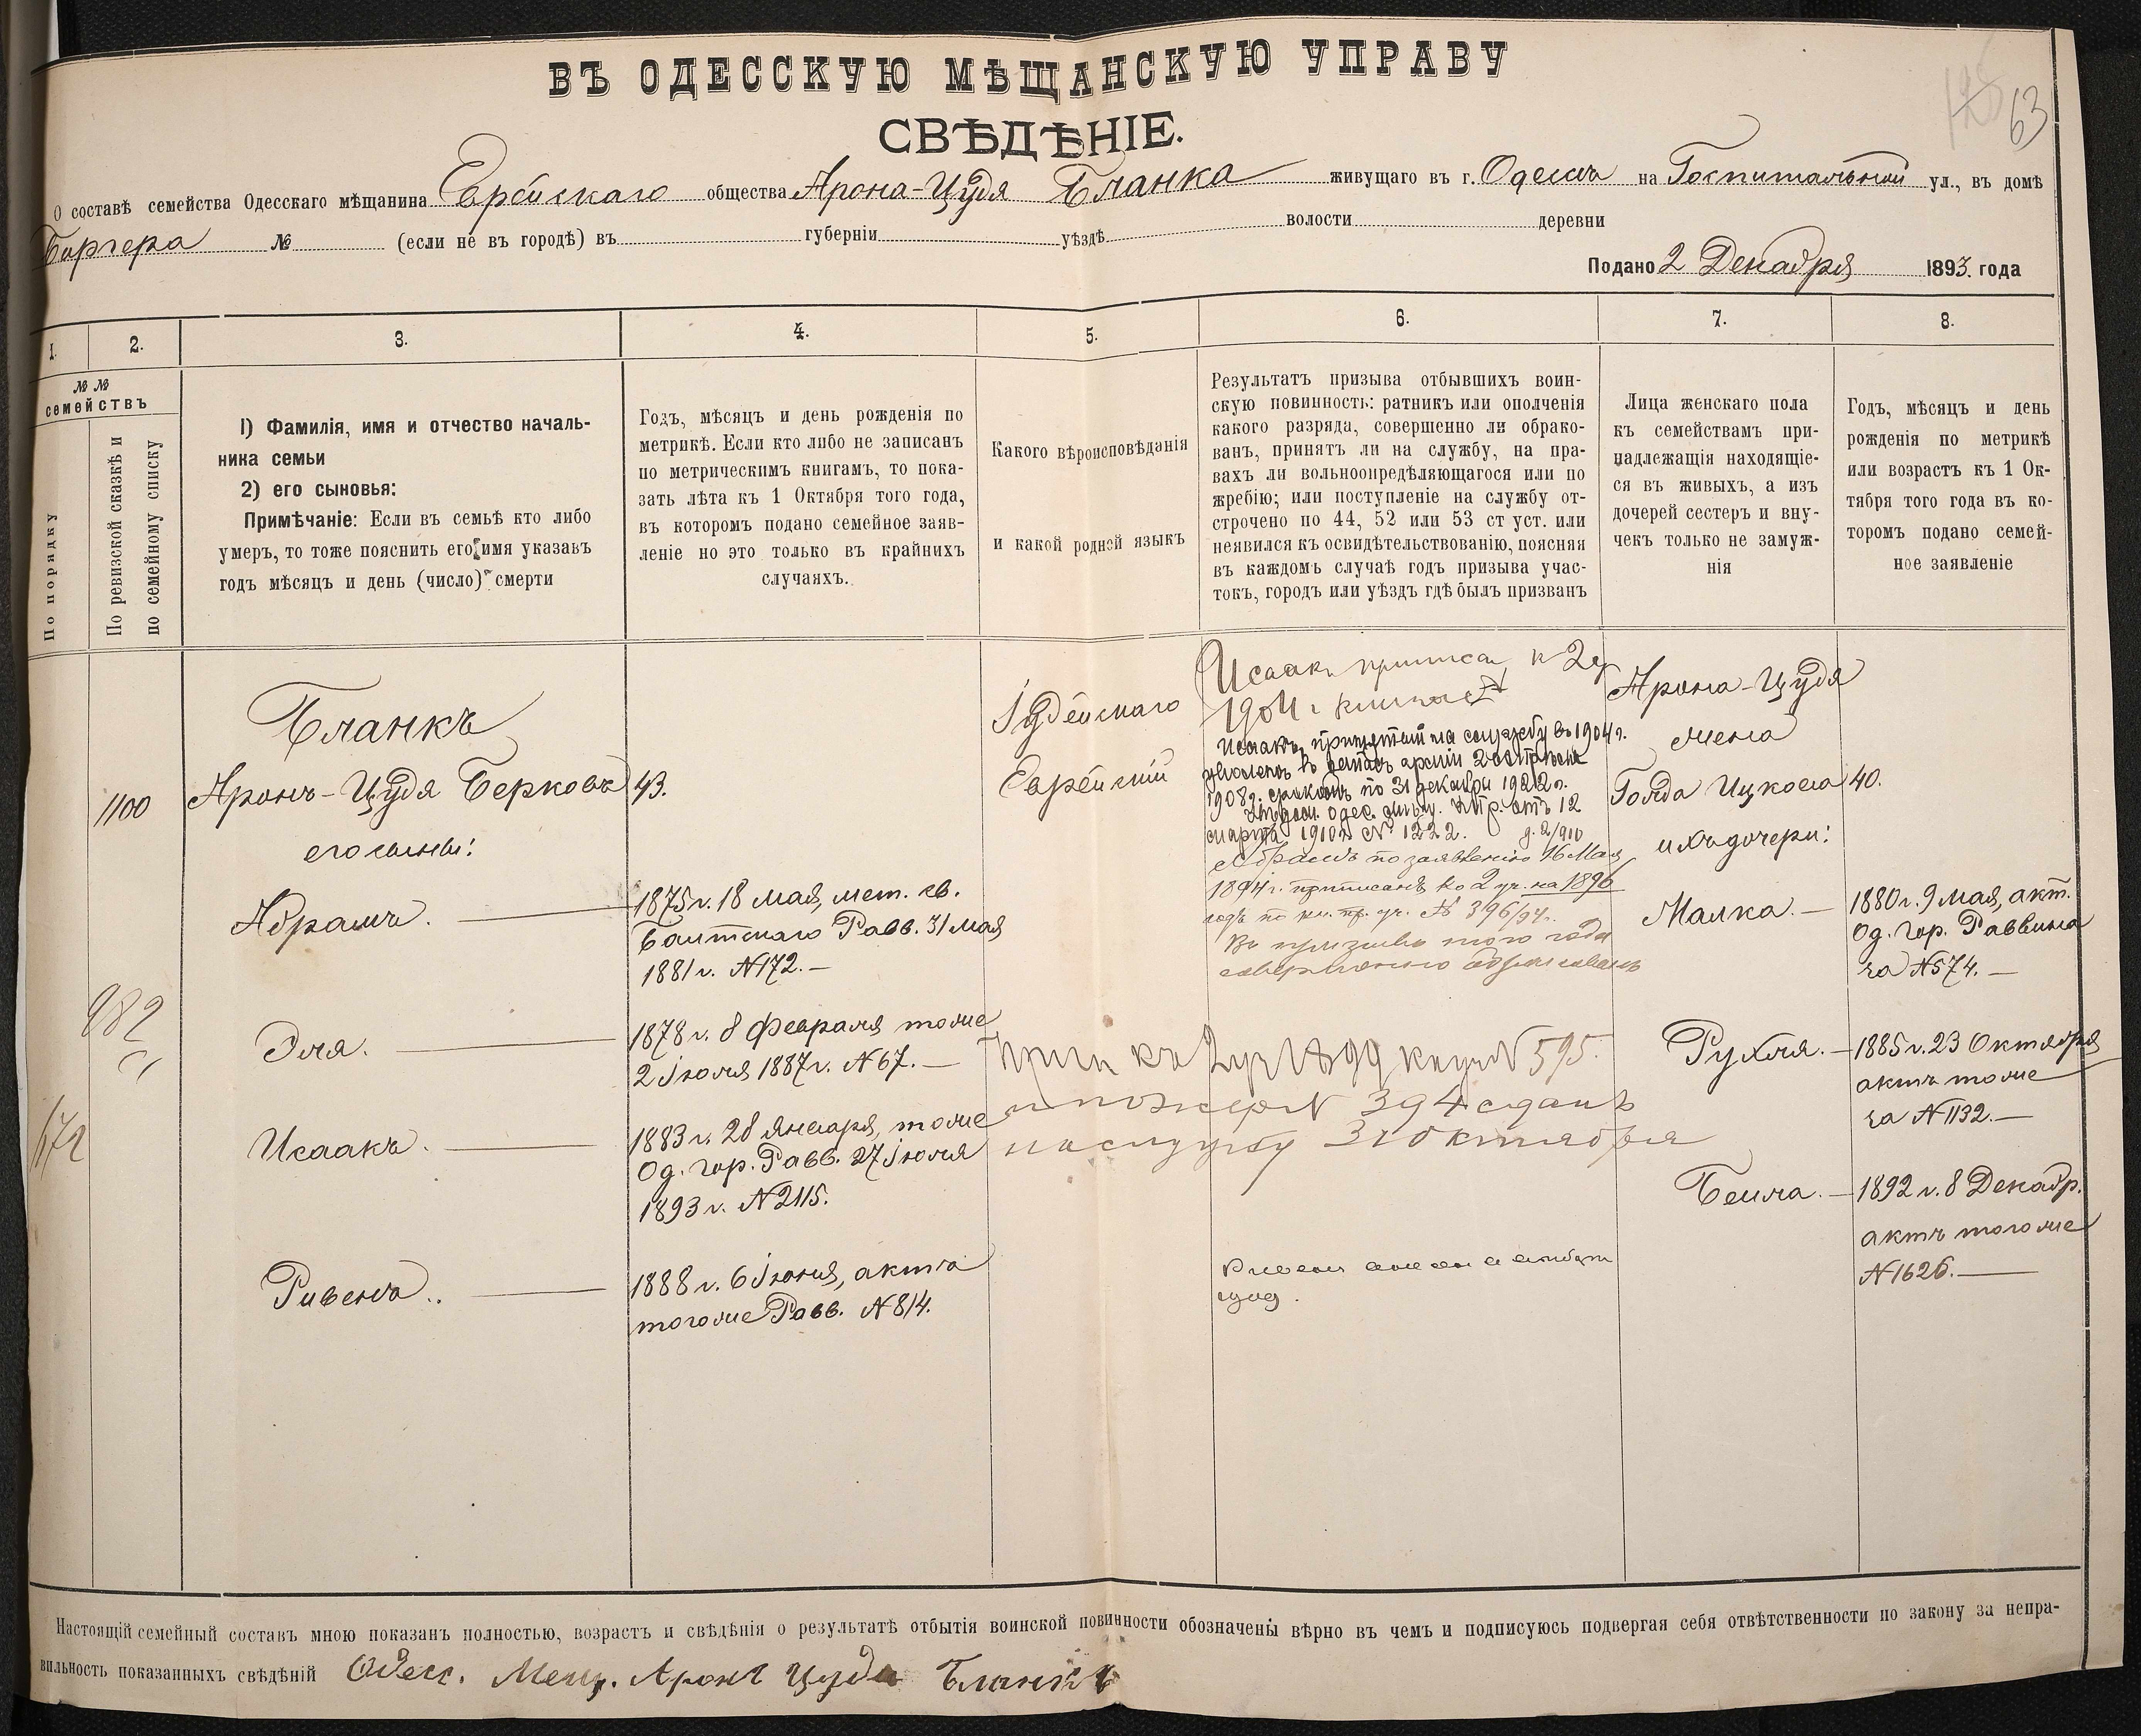 ВЪ ОДЕССКУЮ МѢЩАНСКУЮ УПРАВУ
63
СВѢДѢНІЕ.
О составѣ семейства Одесскаго мѣщанина Еврейскаго общества Арона-Цудя Бланка живущаго въ г. Одессѣ на Госпитальной ул., въ домѣ
Бергера № (если не въ городѣ) въ губерніи уѣздѣ волости деревни
Подано 2 Декабря 1893. года
1. 2. 3. 4. 5. 6. 7. 8.
№№ семействъ
По порядку
По ревизской сказкѣ и
по семейному списку
1) Фамилія, имя и отчество началь-
ника семьи
2) его сыновья:
Примѣчаніе: Если въ семьѣ кто либо
умеръ, то тоже пояснить его имя указавъ
годъ мѣсяцъ и день (число) смерти
Годъ, мѣсяцъ и день рожденія по
метрикѣ. Если кто либо не записанъ
по метрическимъ книгамъ, то пока-
зать лѣта къ 1 Октября того года,
въ которомъ подано семейное заяв-
леніе но это только въ крайнихъ
случаяхъ.
Какого вѣроисповѣданія
и какой родной языкъ
Результатъ призыва отбывшихъ воин-
скую повинность: ратникъ или ополченія
какого разряда, совершенно ли обрако-
ванъ, принятъ ли на службу, на пра-
вахъ ли вольноопредѣляющагося или по
жребію; или поступленіе на службу от-
строчено по 44, 52 или 53 ст уст. или
неявился къ освидѣтельствованію, поясняя
въ каждомъ случаѣ годъ призыва учас-
токъ, городъ или уѣздъ гдѣ былъ призванъ
Лица женскаго пола
къ семействамъ при-
надлежащія находящіе-
ся въ живыхъ, а изъ
дочерей сестеръ и вну-
чекъ только не замуж-
нія
Годъ, мѣсяцъ и день
рожденія по метрикѣ
или возрастъ къ 1 Ок-
тября того года въ ко-
торомъ подано семей-
ное заявленіе
1100
982
Бланкъ
Аронъ-Цудя Берковъ
его сыновья:
Абрамъ.
Эля.
Исаакъ.
Рувенъ.
43.
1875 г. 18 мая, мет. св.
Балтскаго Равв. 31 мая
1881 г. №172.
1878 г. 8 Февраля тоже
2 Іюля 1887 г. №67.
1883 г. 28 Января, тоже
Од. гор. Равв. 27 Іюля
1893 г. №2115.
1888 г. 6 Іюня, актъ
тогоже Равв. №814.
Іудейскаго
Еврейскій
Исаакъ приписан к 2 уч
1904 г
Исаакъ, принятый на службу въ 1904 г.
уволенъ въ запасъ арміи
1908 г. срокомъ по 31 декабря 1922 г.
марта 1910 г № 1222.
Абрамъ по заявленію 16 Мая
1894 г. приписанъ ко 2 уч. на 1896
годъ по кн. пр. уч. № 396/94 г.
Въ призывъ того года
совершенно обракованъ
Прип къ 2 уч 1899 № 595.
и по жер № 394 сданъ
на службу 31 октября
Арона-Цудя
жена
Голда Ицкова
ихъ дочери:
Малка.
Рухля.
Бейла.
40.
1880 г. 9 мая, акт.
Од. гор. Раввина
за №574.
1885 г. 23 Октября
актъ тоже
за №1132.
1892 г. 8 Декабр.
актъ тогоже
№1626.
Настоящій семейный составъ мною показанъ полностью, возрастъ и свѣдѣнія о результатѣ отбытія воинской повинности обозначены вѣрно въ чемъ и подписуюсь подвергая себя отвѣтственности по закону за непра-
вильность показанныхъ свѣдѣній Одесс. Мещ. Аронъ Цудя Бланкъ